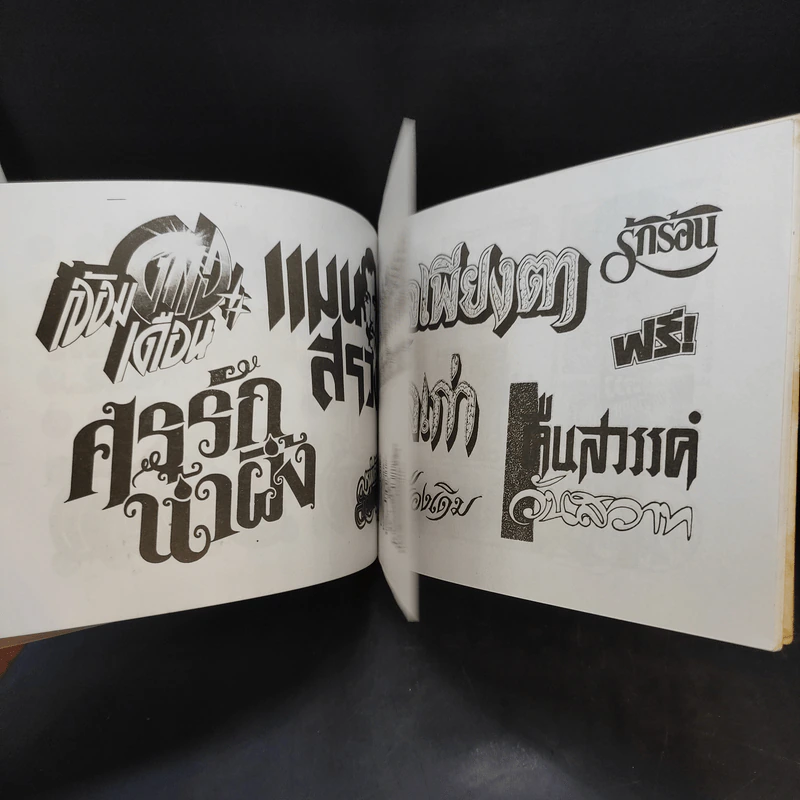 ดาว
เดือน
แมน
สรว
ศรรัก
น้ำผึ้ง
เพียงตา
รักร้อน
ฟรี!
เก่า
องเดิม
คืนสวรรค์
วันสวาท